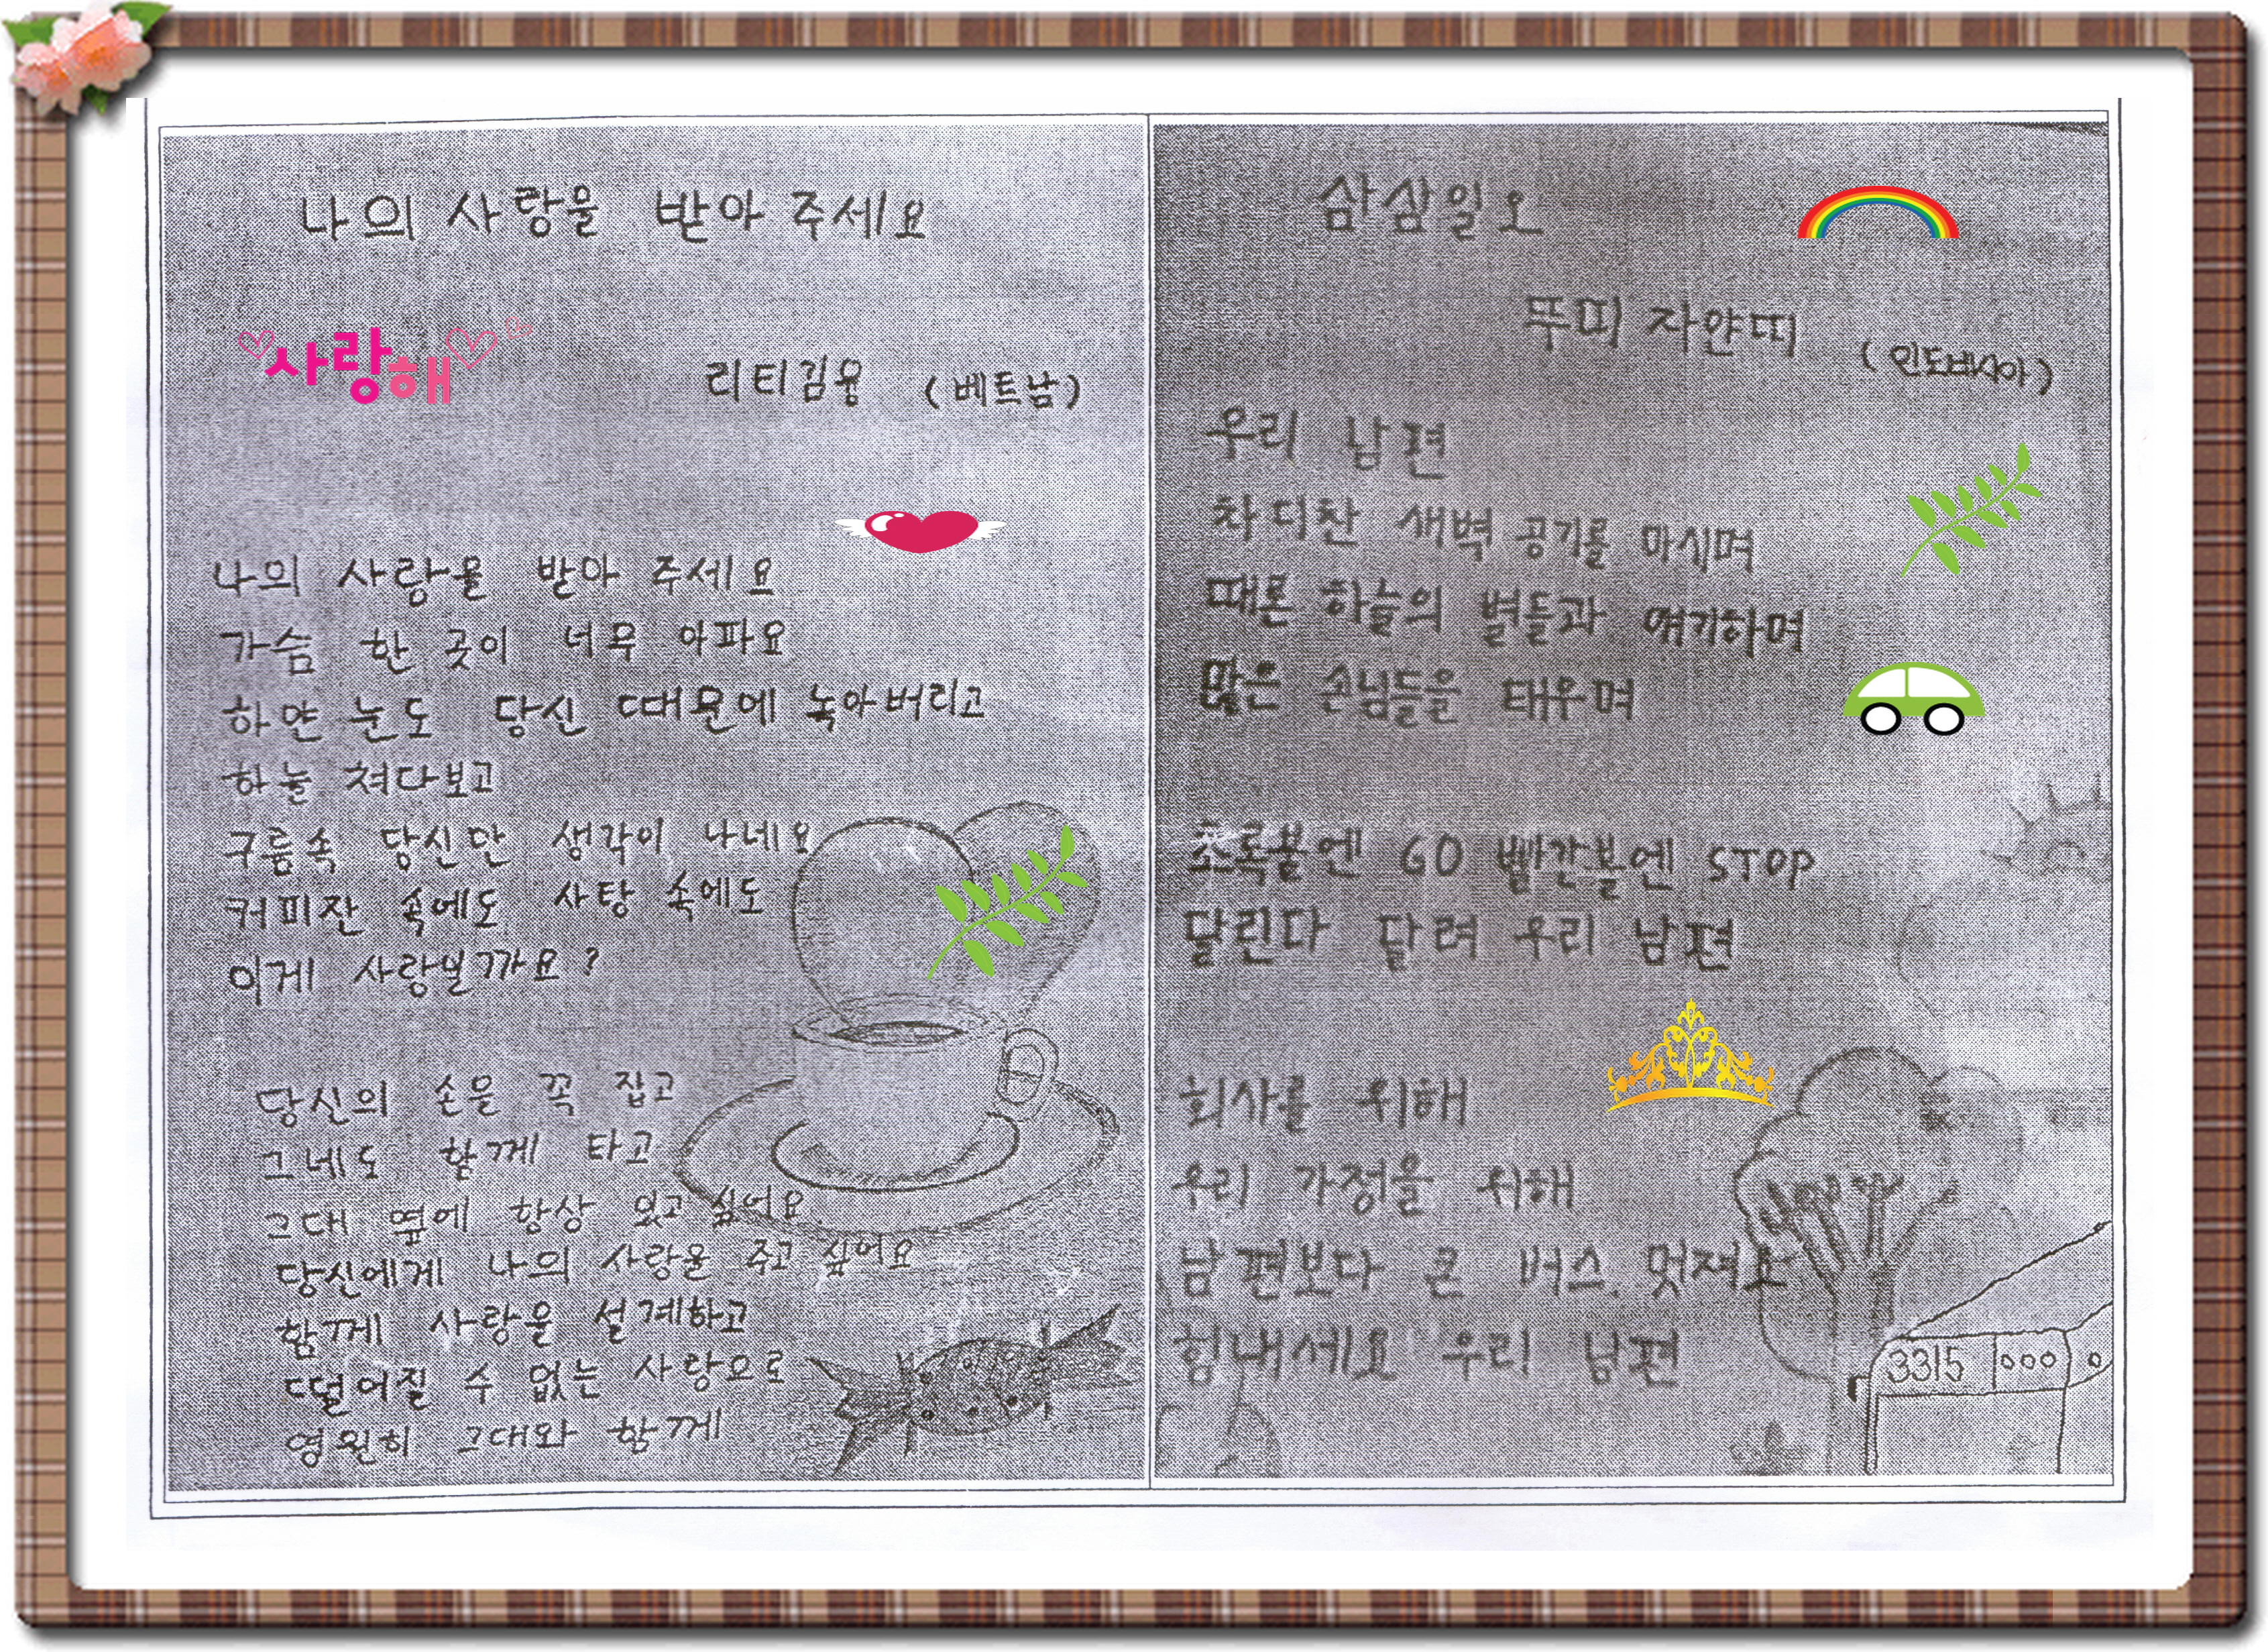 나의 사랑을 받아 주세요
사랑해
리티김용 (베트남)
나의 사랑을 받아 주세요
가슴 한 곳이 너무 아파요
하얀 눈도 당신 때문에 녹아버리고
하늘 쳐다보고
구름속 당신만 생각이 나네요
커피잔 속에도 사탕 속에도
이게 사랑일까요?
당신의 손을 꼭 잡고
그네도 함께 타고
그대 옆에 항상 있고 싶어요
당신에게 나의 사랑을 주고 싶어요
함께 사랑을 설계하고
떨어질 수 없는 사랑으로
영원히 그대와 함께
삼삼일오
뚜띠 자얀띠
(인도네시아)
우리 남편
차디찬 새벽 공기를 마시며
때론 하늘의 별들과 얘기하며
많은 손님들을 태우며
초록불엔 GO 빨간불엔 STOP
달린다 달려 우리 남편
회사를 위해
우리 가정을 위해
남편보다 큰 버스. 멋져요
힘내세요 우리 남편
3315